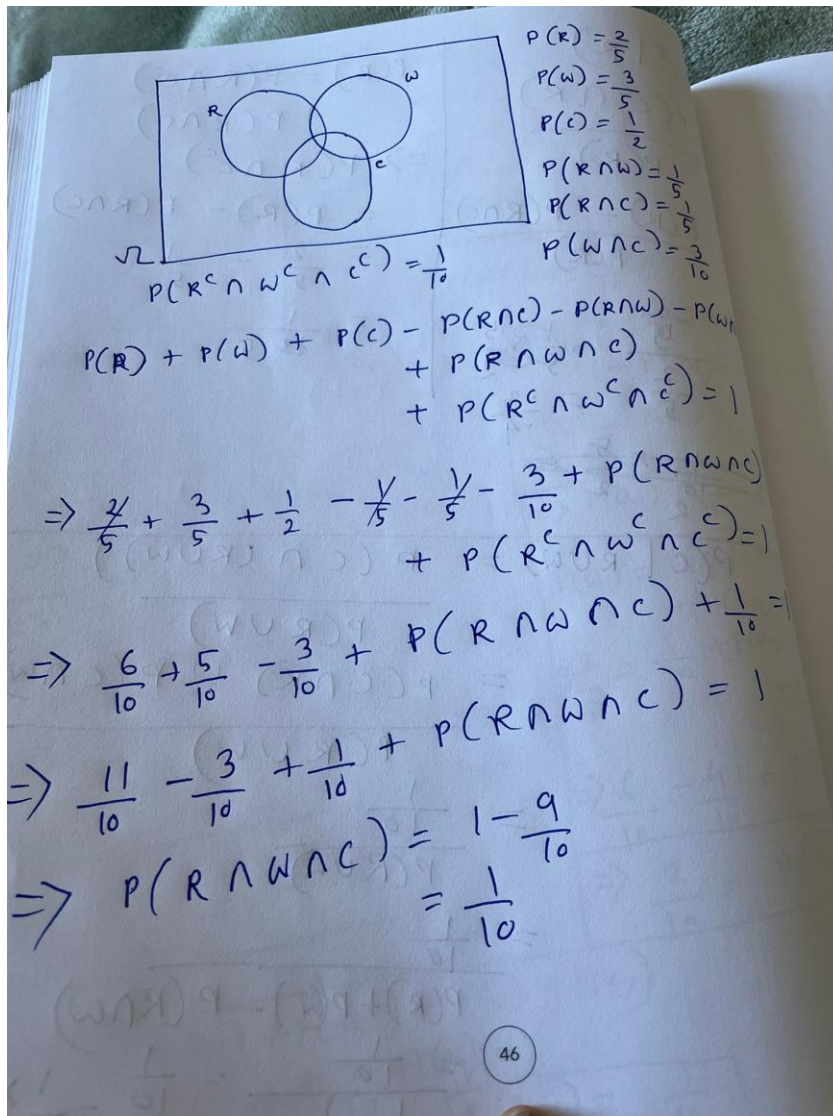 R
W
C
Ω
P(R) = 2/5
P(W) = 3/5
P(C) = 1/2
P(R ∩ W) = 1/5
P(R ∩ C) = 1/5
P(W ∩ C) = 3/10
P(R^C ∩ W^C ∩ C^C) = 1/10
P(R) + P(W) + P(C) - P(R∩C) - P(R∩W) - P(W∩
+ P(R ∩ W ∩ C)
+ P(R^C ∩ W^C ∩ C^C) = 1
=> 2/5 + 3/5 + 1/2 - 1/5 - 1/5 - 3/10 + P(R∩W∩C)
+ P(R^C ∩ W^C ∩ C^C) = 1
=> 6/10 + 5/10 - 3/10 + P(R ∩ W ∩ C) + 1/10 = 1
=> 11/10 - 3/10 + 1/10 + P(R ∩ W ∩ C) = 1
=> P(R ∩ W ∩ C) = 1 - 9/10
= 1/10
46